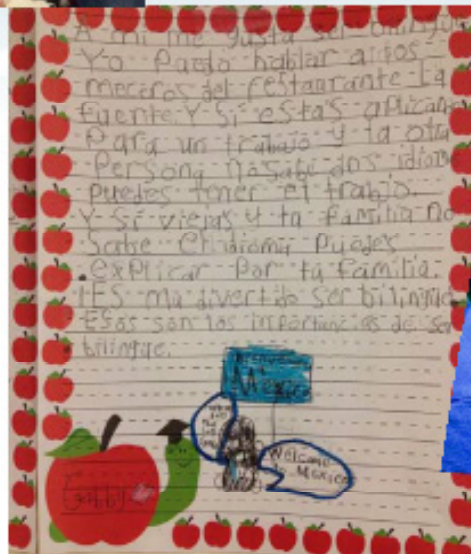 A mi me gusta ser bilingüe
Yo Puedo hablar a los
meceros del restaurante La
fuente. Y Si estas aplican
Para un trabajo y la otra
Persona no sabe dos idioma
Puedes tener el trabajo.
Y Si viejas y ta familia no
Sabe el idioma Puedes
explicar Por tu familia.
¡ES muy divertido ser bilingüe
Esas son las importancias de ser
bilingüe.
Mexico
Welcome
to Mexico
Gabby